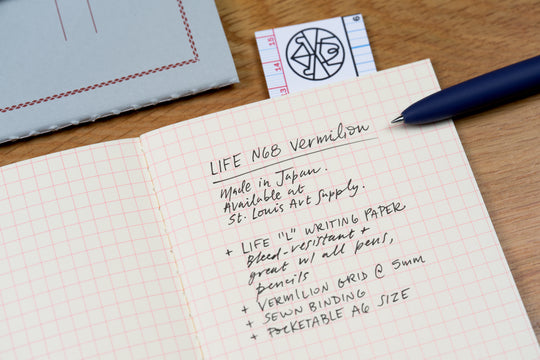 LIFE N68 Vermilion
Made in Japan.
Available at
St. Louis Art Supply.
+ LIFE "L" WRITING PAPER
Bleed-resistant +
great w/ all pens,
pencils
+ VERMILION GRID @ 5mm
+ SEWN BINDING
+ POCKETABLE A6 SIZE
15
14
13
6